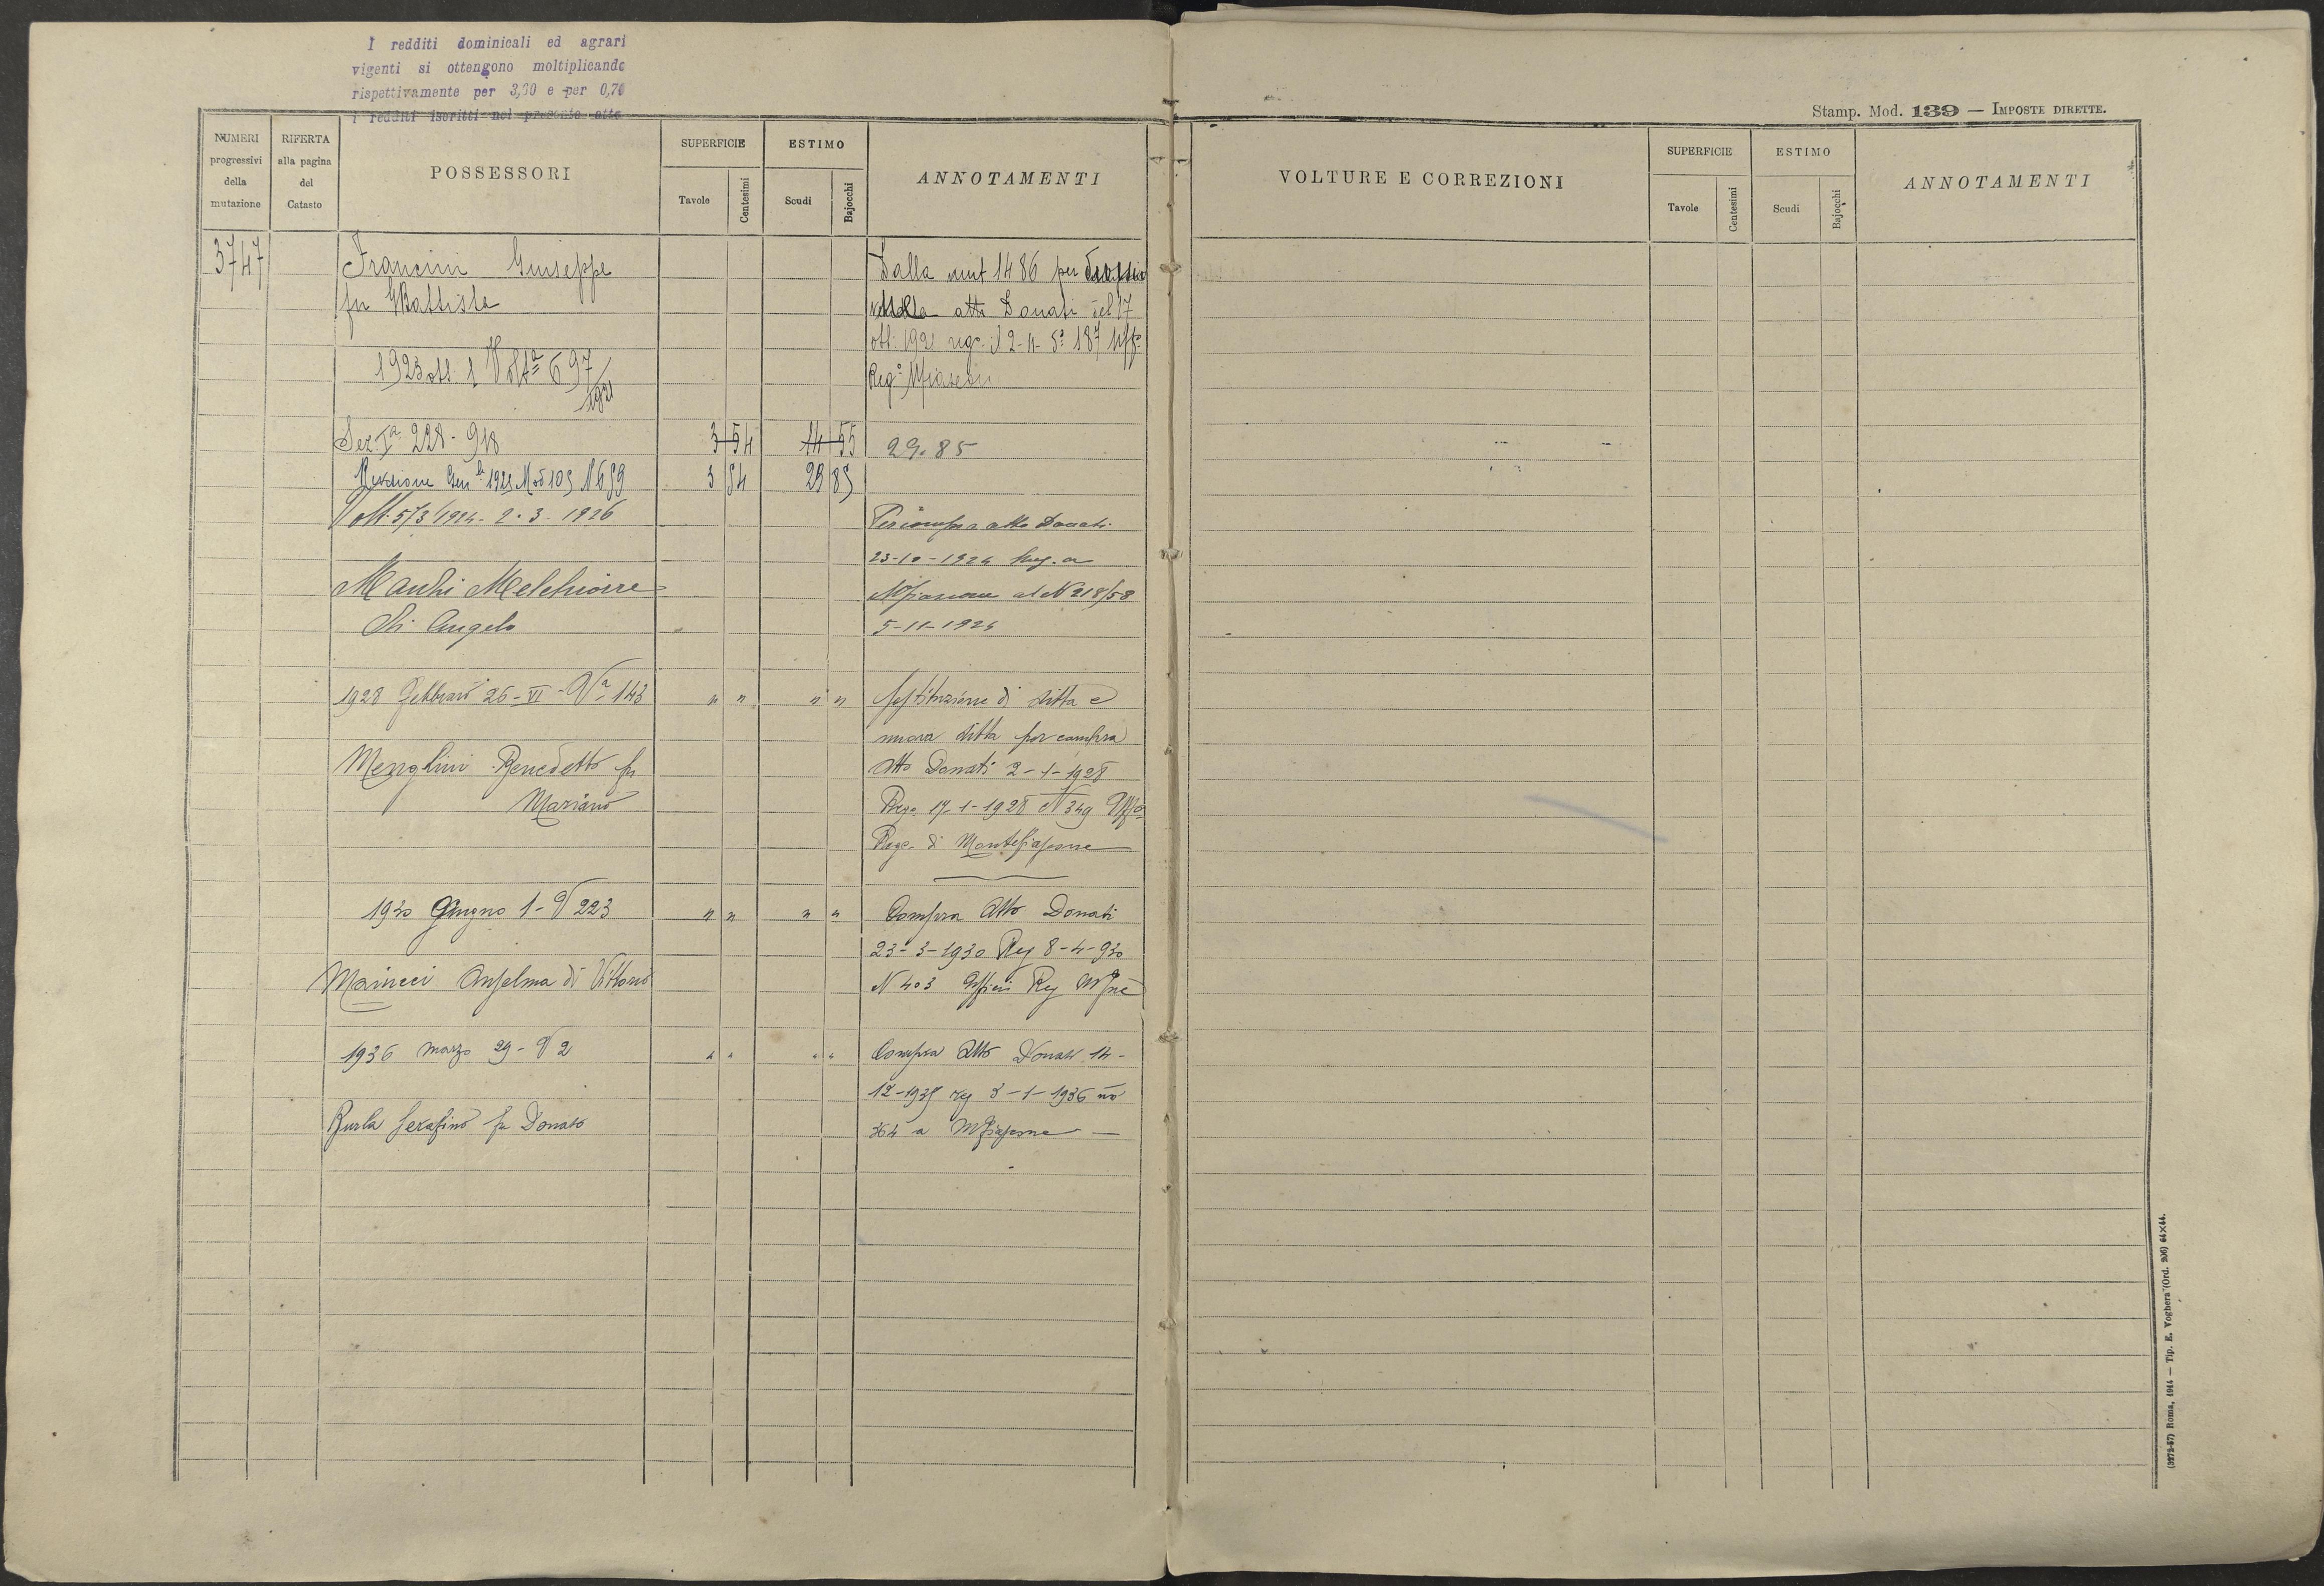 I redditi dominicali ed agrari
vigenti si ottengono moltiplicando
rispettivamente per e per 0,70
i redditi iscritti nel presente atto
NUMERI
progressivi
della
mutazione
RIFERTA
alla pagina
del
Catasto
POSSESSORI
SUPERFICIE
Tavole
Centesimi
ESTIMO
Scudi
Bajocchi
ANNOTAMENTI
3747
Francini Giuseppe
fu GBattista
1923 ott. 1 Volta 697/1921
Sez Ia 228 - 918
3 54
14 55
29.85
Revisione Genle 1923 Mod 109 N 699
3 54
29 85
Volt. 573/1924 - 2. 3. 1926
Manhi Melchiorre
di Angelo
Dalla mut 1486 per
atti Donati del 17
ott. 1921 rego il 2-11- 187 Uffo
Rego Mfiascone
Per compra atto Donati
23-10-1924 Reg. a
Mfiascone al N 218/58
5-11-1924
1928 Febbraio 26-VI-Va 143
" " " "
Sostituzione di ditta e
nuova ditta per compra
Atto Donati 2-1-1928
Rego. 17-1-1928 N 349 Uffo
Rego. di Montefiascone
Menghini Benedetto fu
Mariano
1930 Giugno 1-V 223
" " " "
Compra Atto Donati
23-3-1930 Reg 8-4-930
N 403 Uffici Reg Mfne
Mainecci Anselma di Vittorio
1936 marzo 29-V 2
" " " "
Compra Atto Donati 14-
12-1935 reg 3-1-1936 no
364 a Mfiascone
Burla Serafino fu Donato
Stamp. Mod. 139 — IMPOSTE DIRETTE.
VOLTURE E CORREZIONI
SUPERFICIE
Tavole
Centesimi
ESTIMO
Scudi
Bajocchi
ANNOTAMENTI
(3272-57) Roma, 1914 — Tip. E. Voghera (Ord. 206) 64×44.